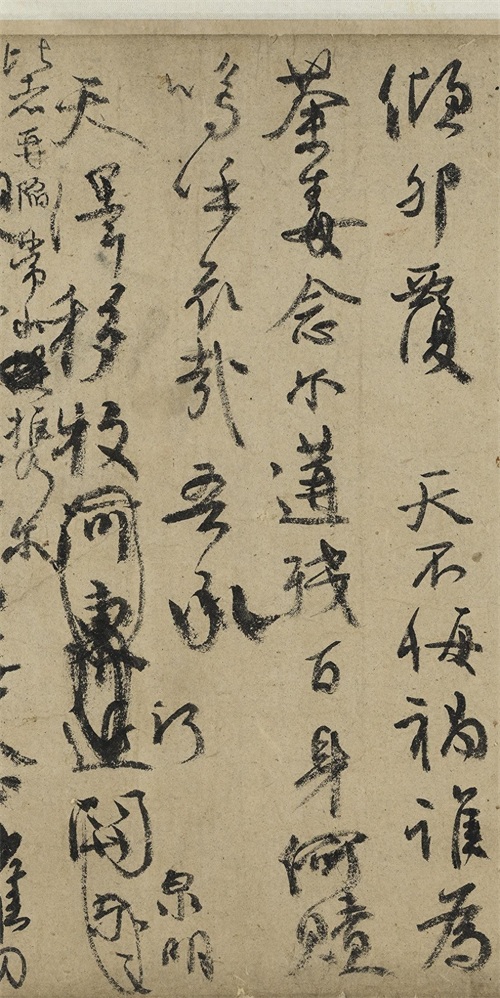 傾卵覆 天不悔禍誰為
荼毒念尓遘殘百身何贖
嗚呼哀哉吾承
天澤移牧河東近關
泉明
比者再陷常山攜尔